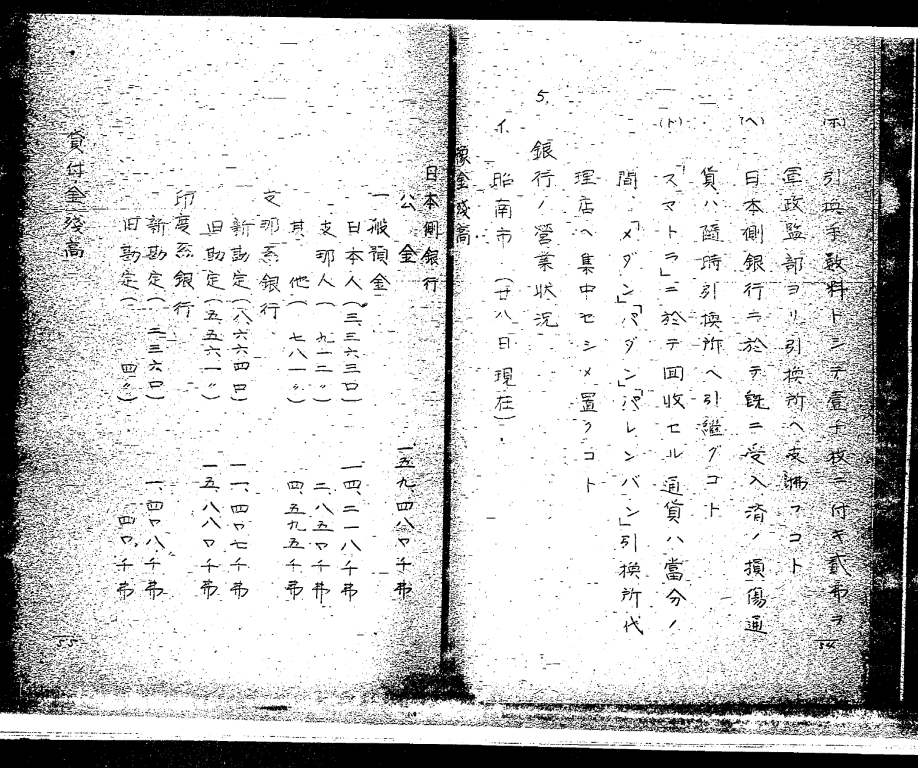 (ホ) 引換手数料トシテ壹千枚ニ付キ貳弗ヲ
軍政監部ヨリ引換所ヘ支拂フコト
(ヘ) 日本側銀行ニ於テ既ニ受入済ノ損傷通
貨ハ隨時引換所ヘ引継グコト
(ト) 「スマトラ」ニ於テ回收セル通貨ハ當分ノ
間、「メダン」「パダン」「パレンバン」引換所代
理店ヘ集中セシメ置クコト
5. 銀行ノ營業狀況
イ. 昭南市 (廿八日現在).
預金残高
54
日本側銀行
公金 一五九、四八〇千弗
一般預金
日本人(三三六三口) 一四、二一八千弗
支那人( 九二二〃) 二、八五〇千弗
其他( 七八一〃) 四、五九五千弗
支那系銀行
新勘定(八六六四口) 一一、四〇七千弗
旧勘定(五五六一〃) 一五、八八〇千弗
印度系銀行
新勘定( 三三六口) 一、四〇八千弗
旧勘定( 四〃) 四〇千弗
貸付金殘高
55